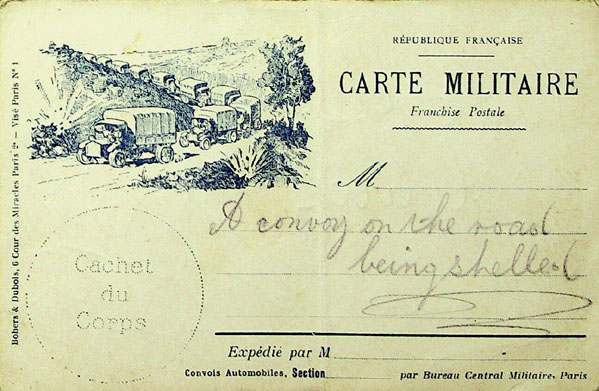 RÉPUBLIQUE FRANÇAISE
CARTE MILITAIRE
Franchise Postale
M
A convoy on the road
being shelled
Cachet
du
Corps
Expédié par M
Convois Automobiles, Section
par Bureau Central Militaire, Paris
Bohers & Dubois, 6 Cour des Miracles Paris 2e — Visé Paris No 1